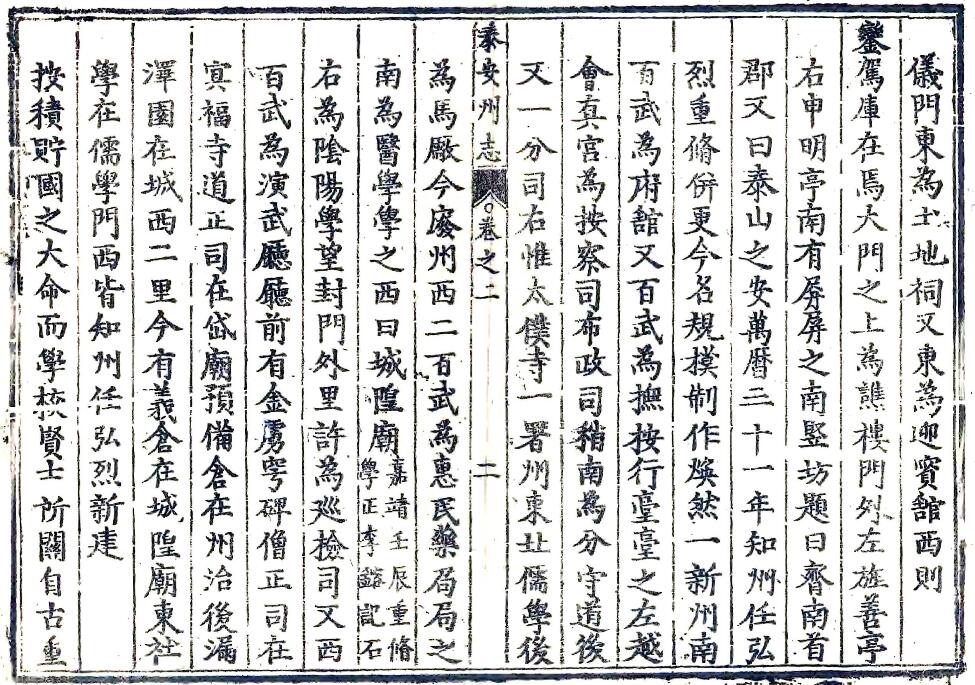 儀門東為土地祠又東為迎賓舘西則
鑾駕庫在焉大門之上為譙樓門外左旌善亭
右申明亭南有屏屏之南竪坊題曰齊南首
郡又曰泰山之安萬曆三十一年知州任弘
烈重脩併更今名規摸制作煥然一新州南
百武為府舘又百武為撫按行臺臺之左越
會真宮為按察司布政司稍南為分守道後
又一分司右惟太僕寺一署州東北儒學後
泰安州志 卷之二 二
為馬厰今廢州西二百武為惠民藥局局之
南為醫學學之西曰城隍廟嘉靖壬辰重脩學正李 記石
右為陰陽學望封門外里許為廵檢司又西
百武為演武廳廳前有金虜穹碑僧正司在
㝠福寺道正司在岱廟預備倉在州治後漏
澤園在城西二里今有義倉在城隍廟東社
學在儒學門西皆知州任弘烈新建
按積貯國之大命而學校賢士所關自古重